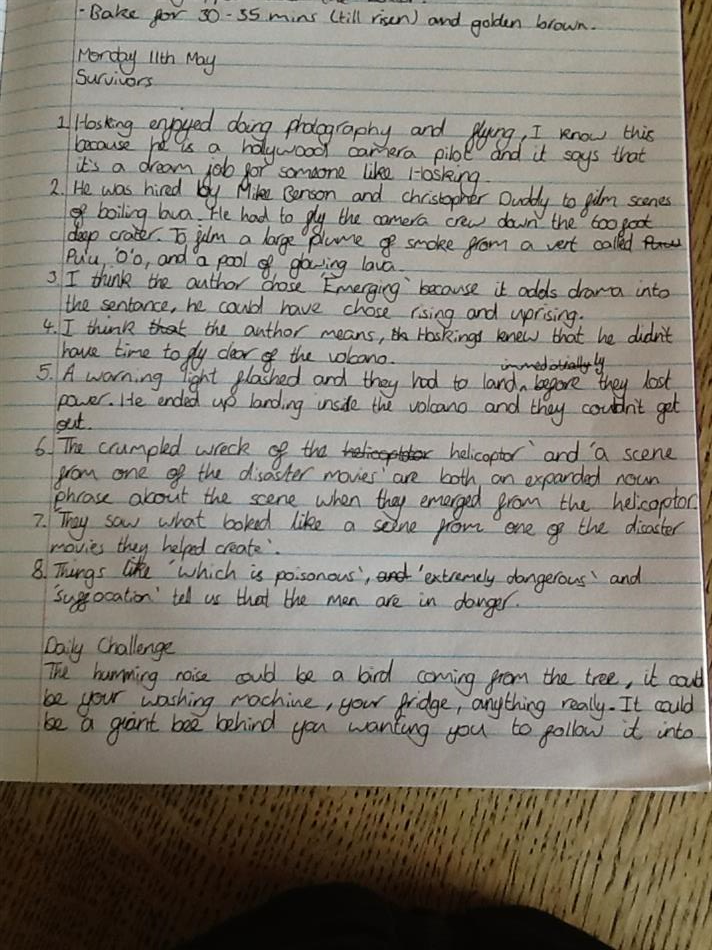 - Bake for 30-35 mins (till risen) and golden brown.
Monday 11th May
Survivors
1. Hosking enjoyed doing photography and flying, I know this
because he is a hollywood camera pilot and it says that
it's a dream job for someone like Hosking.
2. He was hired by Mike Benson and christopher Duddy to film scenes
of boiling lava. He had to fly the camera crew down the 600 foot
deep crater. To film a large plume of smoke from a vert called
Pu'u, 'O'o, and a pool of glowing lava.
3. I think the author chose 'Emerging' because it adds drama into
the sentence, he could have chose rising and uprising.
4. I think that the author means, Hoskings knew that he didn't
have time to fly clear of the volcano.
immediatially
5. A warning light flashed and they had to land, before they lost
power. He ended up landing inside the volcano and they couldn't get
out.
6. The crumpled wreck of the helicoptor helicoptor' and 'a scene
from one of the disaster movies' are both an expanded noun
phrase about the scene when they emerged from the helicoptor.
7. They saw what looked like a seine from one of the disaster
movies they helped create'.
8. Things like 'which is poisonous', and 'extremely dangerous' and
'suffocation' tell us that the men are in danger.
Daily Challenge
The humming noise could be a bird coming from the tree, it could
be your washing machine, your fridge, anything really. It could
be a giant bee behind you wanting you to follow it into